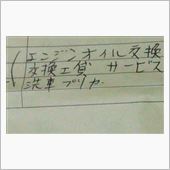 エンジンオイル交換
交換工賃 サービス
洗車プリカ